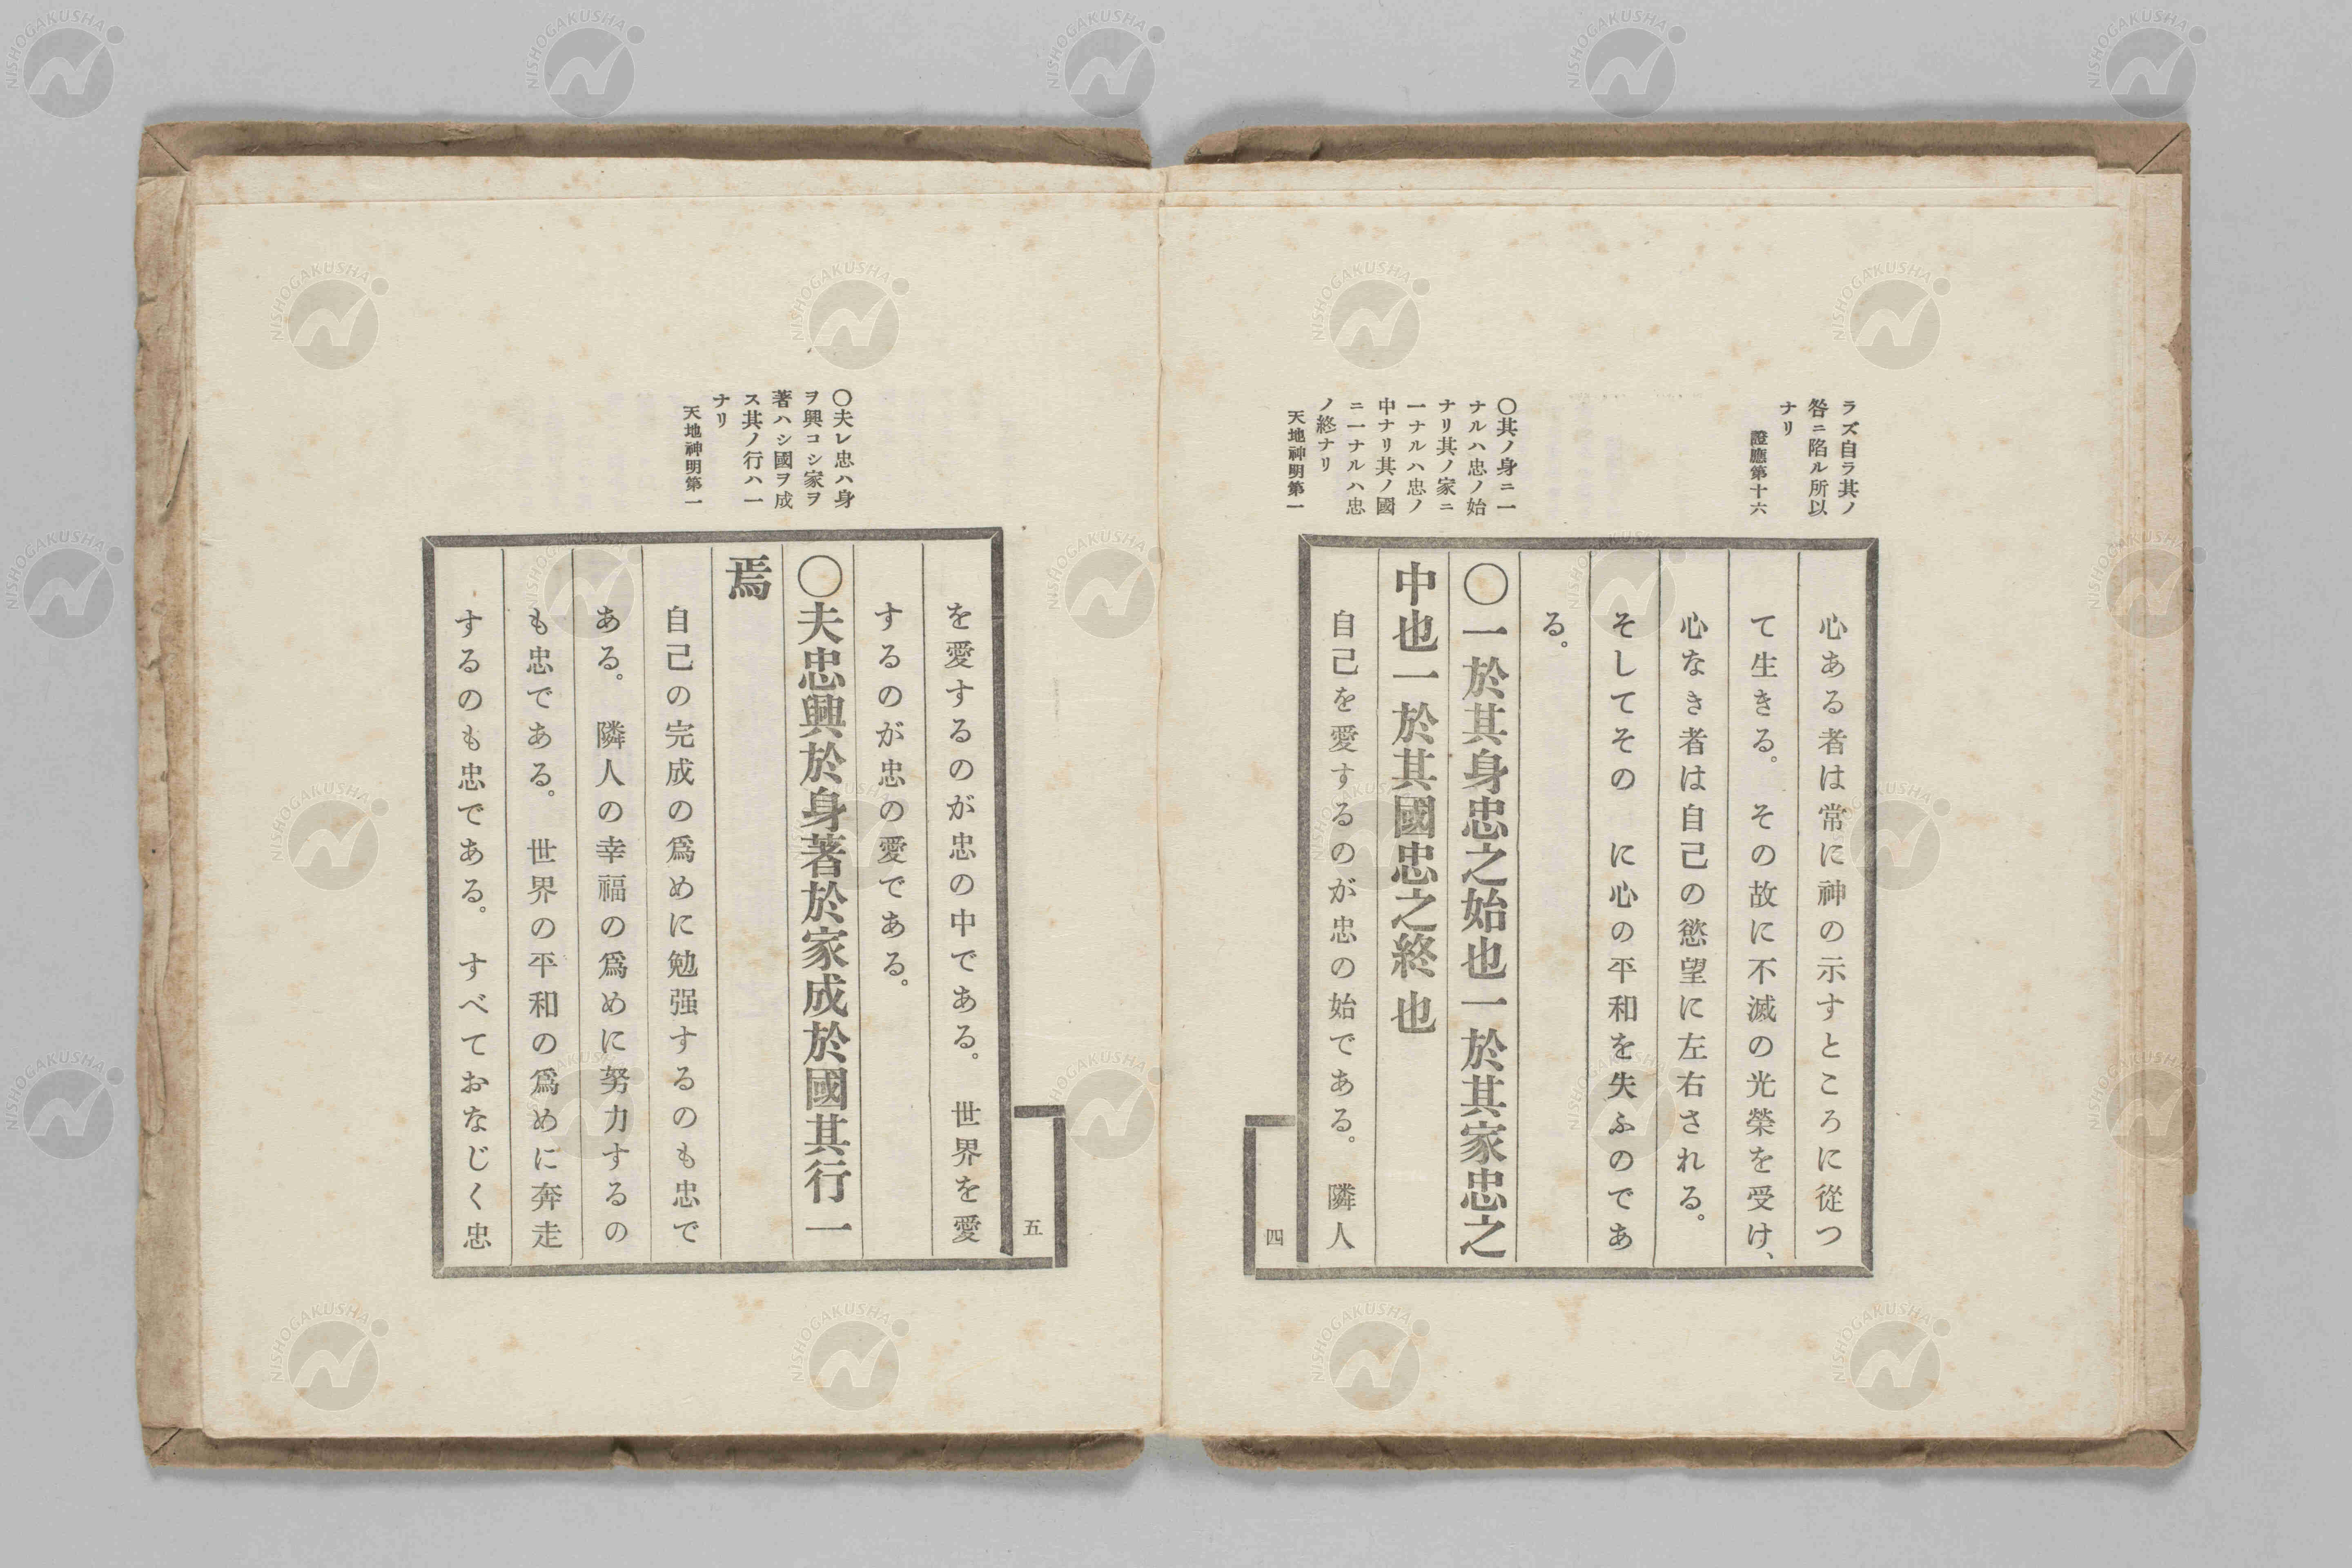 ラズ自ラ其ノ
咎ニ陷ル所以
ナリ
證應第十六
〇其ノ身ニ一
ナルハ忠ノ始
ナリ其ノ家ニ
一ナルハ忠ノ
中ナリ其ノ國
ニ一ナルハ忠
ノ終ナリ
天地神明第一
心ある者は常に神の示すところに從つ
て生きる。その故に不滅の光榮を受け、
心なき者は自己の慾望に左右される。
そしてその　に心の平和を失ふのであ
る。
〇一於其身忠之始也一於其家忠之
中也一於其國忠之終也
自己を愛するのが忠の始である。隣人
四
〇夫レ忠ハ身
ヲ興コシ家ヲ
著ハシ國ヲ成
ス其ノ行ハ一
ナリ
天地神明第一
五
を愛するのが忠の中である。世界を愛
するのが忠の愛である。
〇夫忠興於身著於家成於國其行一
焉
自己の完成の爲めに勉强するのも忠で
ある。隣人の幸福の爲めに努力するの
も忠である。世界の平和の爲めに奔走
するのも忠である。すべておなじく忠
NISHOGAKUSHA